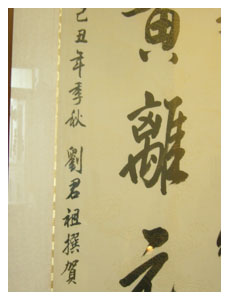 黃離元
己丑年季秋 劉君祖撰賀